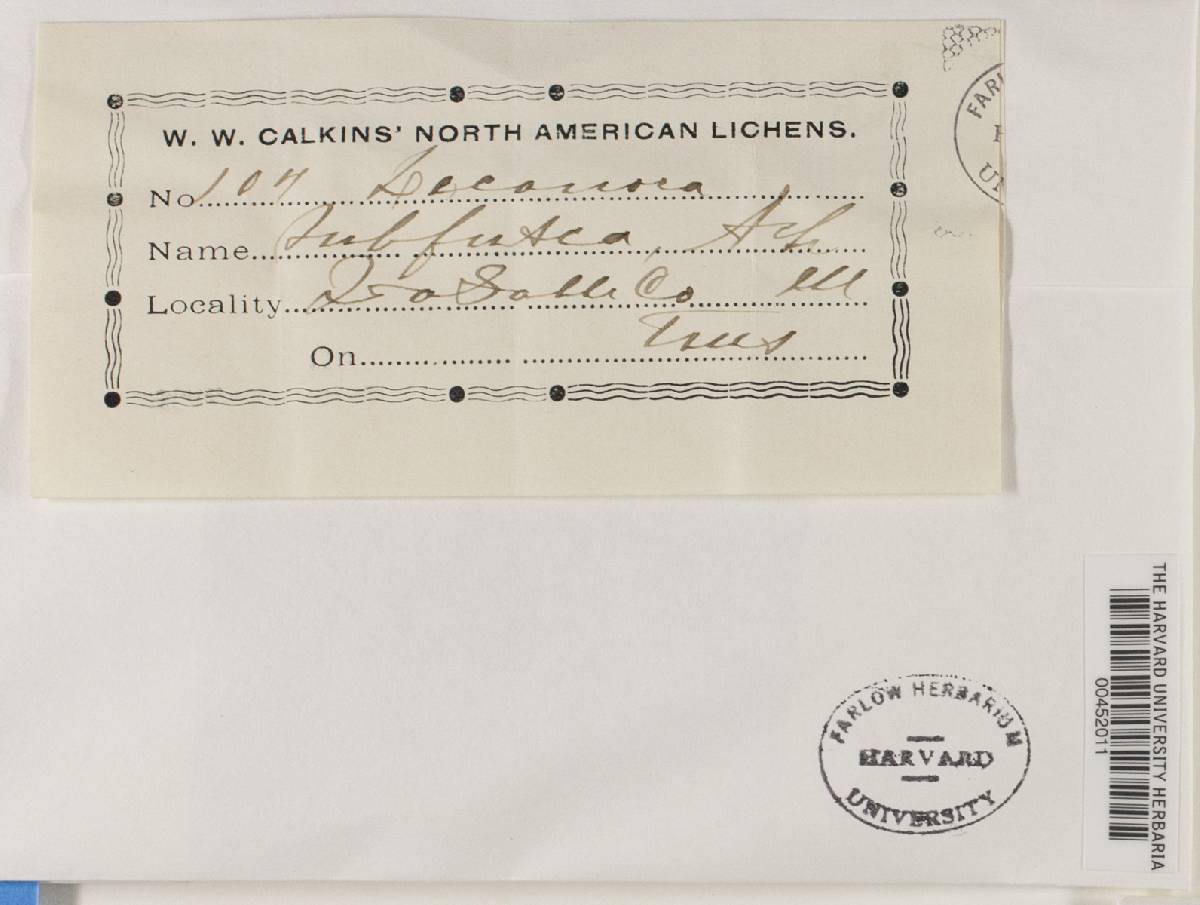 W. W. CALKINS' NORTH AMERICAN LICHENS.
No. 107 Lecanora
Name subfusca, Ach
Locality La Salle Co Ill
On Trees
FARLOW HERBARIUM
HARVARD
UNIVERSITY
THE HARVARD UNIVERSITY HERBARIA
00452011